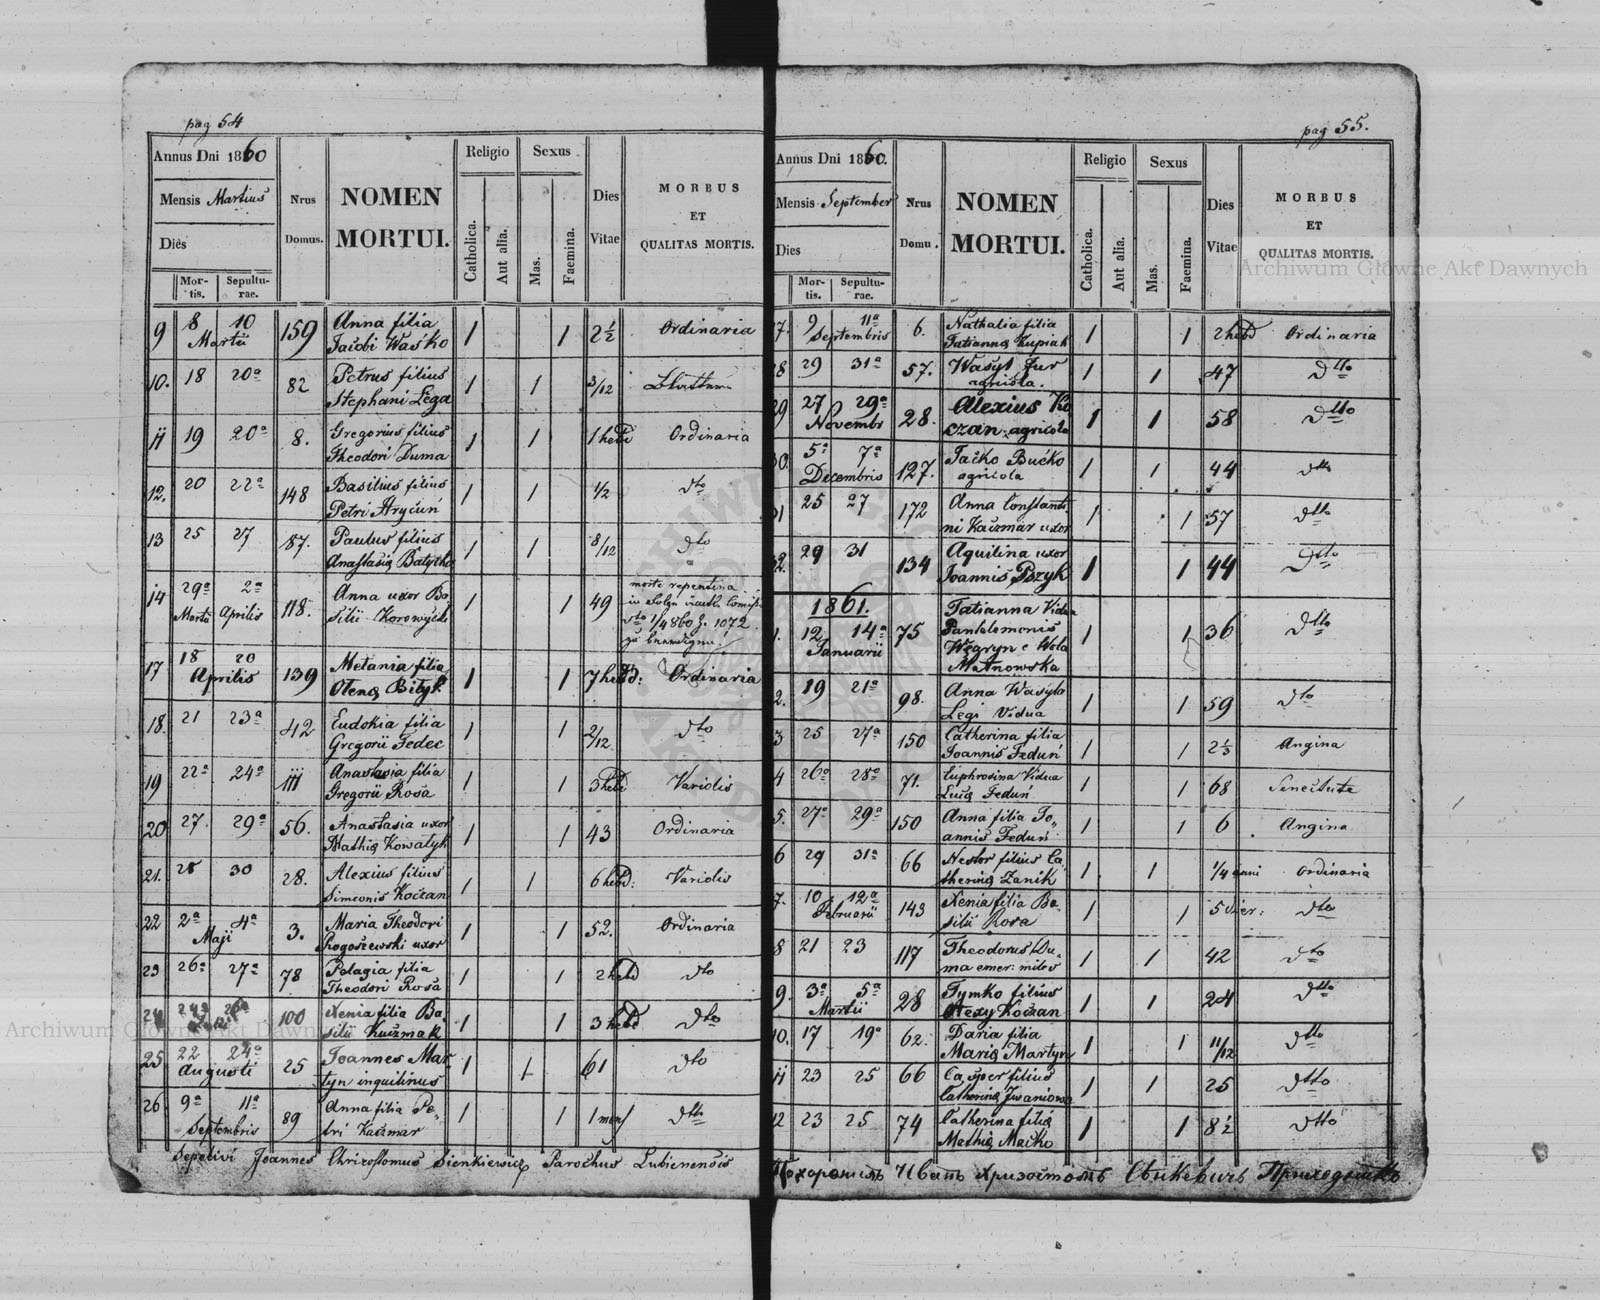 pag 54
Annus Dni 1860
Mensis Martius
Dies
Mortis. Sepulturae.
Nrus Domus.
NOMEN MORTUI.
Religio
Catholica. Aut alia.
Sexus
Mas. Faemina.
Dies Vitae
MORBUS ET QUALITAS MORTIS.
9 8 10 159 Anna filia 1 1 2½ Ordinaria
Martii Jacobi Waśko
10. 18 20a 82 Petrus filius 1 1 3/12
Stephani Lega
11 19 20a 8. Gregorius filius 1 1 1 hebd Ordinaria
Theodori Duma
12. 20 22a 148 Basilius filius 1 1 ½ dto
Petri Hryćuń
13 25 27 87. Paulus filius 1 1 8/12 dto
Anastasia
14 29a 2a 118. Anna uxor Ba 1 1 49 morte repentina
Martii Aprilis silii
1/4 860 z. 1072
17 18 20 139 Melania filia 1 1 7 hebd: Ordinaria
Aprilis Olena Bityk
18. 21 23a 42 Eudokia filia 1 1 2/12 dto
Gregorii Fedec
19 22a 24a 111 Anastasia filia 1 1 3 hebd Variolis
Gregorii Rosa
20 27. 29a 56. Anastasia uxor 1 1 43 Ordinaria
Mathia Kowalyk
21. 28 30 28. Alexius filius 1 1 6 hebd: Variolis
Simeonis Koczan
22 2a 4a 3. Maria Theodori 1 1 52. Ordinaria
Maji Rogoszewski uxor
23 26a 27a 78 Pelagia filia 1 1 2 hebd dto
Theodori Rosa
24 100 Xenia filia Ba 1 1 3 hebd dto
silii Kuczmak
25 22 24a 25 Joannes Mar 1 1 61 dto
Augusti tyn inquilinus
26. 9a 11a 89 Anna filia Pe 1 1 1 men dtto
Septembris tri Kaczmar
Sepelivi Joannes Chrizostomus Sienkiewicz Parochus Lubienensis
pag 55.
Annus Dni 1860.
Mensis September
Dies
Mortis. Sepulturae.
Nrus Domu.
NOMEN MORTUI.
Religio
Catholica. Aut alia.
Sexus
Mas. Faemina.
Dies Vitae
MORBUS ET QUALITAS MORTIS.
7. 9 11a 6. Nathalia filia 1 1 2 hebd Ordinaria
Septembris Tatianna Kupiak
8 29 31a 57. Wasyl Fur 1 1 47 dtto
agricola.
9 27 29a 28. Alexius Ko 1 1 58 dtto
Novembr czan agricola
30. 5a 7a 127. Jaćko Bućko 1 1 44 dtto
Decembris agricola
31 25 27 172 Anna Constanti 1 1 57 dtto
ni Kaczmar uxor
2. 29 31 134 Aquilina uxor 1 1 44 dtto
Joannis Pszyk
1861.
1. 12 14a 75 Tatianna Vidua 1 1 36 dtto
Januarii Panteleimonis
Węgryn e Wola
2. 19 21a 98. Anna Wasyla 1 1 59 dto
Legi Vidua
3 25 27a 150 Catherina filia 1 1 2⅓ Angina
Joannis Feduń
4 26a 28a 71. Euphrosina Vidua 1 1 68 Senectute
Luca Feduń
5. 27a 29a 150 Anna filia Jo 1 1 6 Angina
annis Feduń
6 29 31a 66 Nestor filius Ca 1 1 1/4 anni Ordinaria
therina Zanik
7. 10 12a 143 Xenia filia Ba 1 1 5 dier: dto
Februarii silii Rosa
8 21 23 117 Theodorus Du 1 1 42 dto
ma emer: miles
9. 3a 5a 28 Tymko filius 1 1 24 dtto
Martii Olexy Koczan
10. 17 19a 62. Daria filia 1 1 11/12 dtto
Maria Martyn
11 23 25 66 Casper filius 1 1 25 dtto
Catherina Iwaniowa
12 23 25 74 Catherina filia 1 1 8½ dtto
Mathia Maćko
Похоронилъ Иванъ Хризостомъ Сѣнкевичъ Приходникъ
Archiwum Główne Akt Dawnych
Archiwum Główne Akt Dawnych